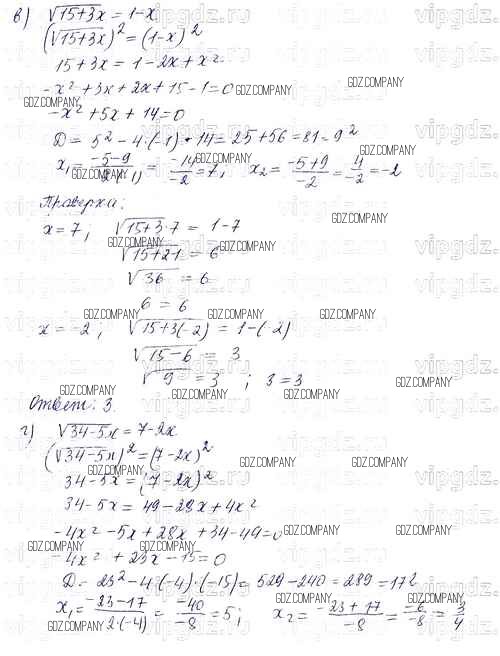 в) √15+3x = 1-x
(√15+3x)² = (1-x)²
15+3x = 1-2x+x²
-x²+3x+2x+15-1=0
-x²+5x+14=0
D = 5²-4·(-1)·14=25+56=81=9²
x₁ = -5-9/2·(-1) = -14/-2 = 7; x₂ = -5+9/-2 = 4/-2 = -2
Проверка:
x=7; √15+3·7 = 1-7
√15+21 = 6
√36 = 6
6 = 6
x = -2; √15+3(-2) = 1-(-2)
√15-6 = 3
√9 = 3; 3=3
Ответ: 3.
г) √34-5x = 7-2x
(√34-5x)² = (7-2x)²
34-5x = (7-2x)²
34-5x = 49-28x+4x²
-4x²-5x+28x+34-49=0
-4x²+23x-15=0
D = 23²-4·(-4)·(-15)=529-240=289=17²
x₁ = -23-17/2·(-4) = -40/-8 = 5; x₂ = -23+17/-8 = -6/-8 = 3/4
GDZ.COMPANY
vipgdz.ru